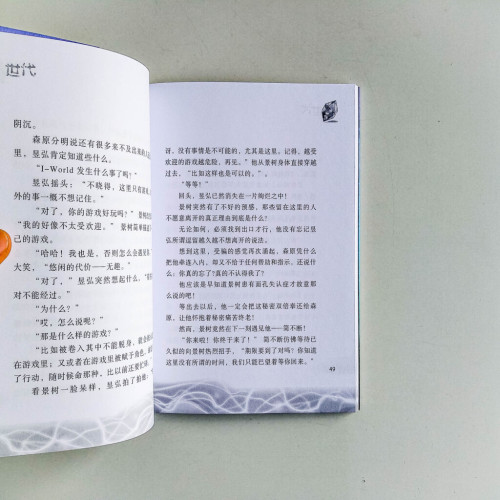 世代
阴沉。
森原分明说还有很多来不及出来的人
里，昱弘肯定知道些什么。
“I-World 发生什么事了吗？”
昱弘摇头：“不晓得，这里只有游戏
外的事一概不想记住。”
“对了，你的游戏好玩吗？”景树
“我的好像不太受欢迎。”景树简单描
己的游戏。
“哈哈！我也是，否则怎么会遇
大笑，“悠闲的代价——无趣。”
“对了，”昱弘突然想起什么，“
对不能经过。”
“为什么？”
“哎，怎么说呢？”
“那是什么样的游戏？”
“比如被卷入其中不能脱身，就会
在游戏里；又或者在游戏里被赋予角色，
了行动，随时候命那种，比以前还要忙
看景树一脸呆样，昱弘拍了拍他
讶，没有事情是不可能的，尤其是这里。记得，越受
欢迎的游戏越危险，再见。”他从景树身体直接穿越
过去，“比如这样也是可以的。”
“等等！”
回头，昱弘已然消失在一片绚烂之中！
景树突然有了不好的预感，那些留在这里的人
不愿意离开的真正理由到底是什么？
无论如何，必须找到出口才行，他没有忘记昱
弘所谓逗留越久越不想离开的说法。
想到这里，受骗的感觉再次涌起，森原凭什么
把他牵连入内，却又不给予任何帮助和指示。还说什
么：你真的忘了?真的不认得我了?
他应该是早知道景树患有面孔失认症才故意那
么说的吧！
等出去以后，他一定会把这秘密双倍奉还给森
原，让他怀抱着秘密痛苦终老！
然而，景树竟然在下一刻遇见他——简不断！
“你来啦！你终于来了！”简不断仿佛等待已
久似的向景树热烈招手，“期限要到了对吗？你知道
这里没有所谓的时间，我们只能巴望着等你回来。”
49